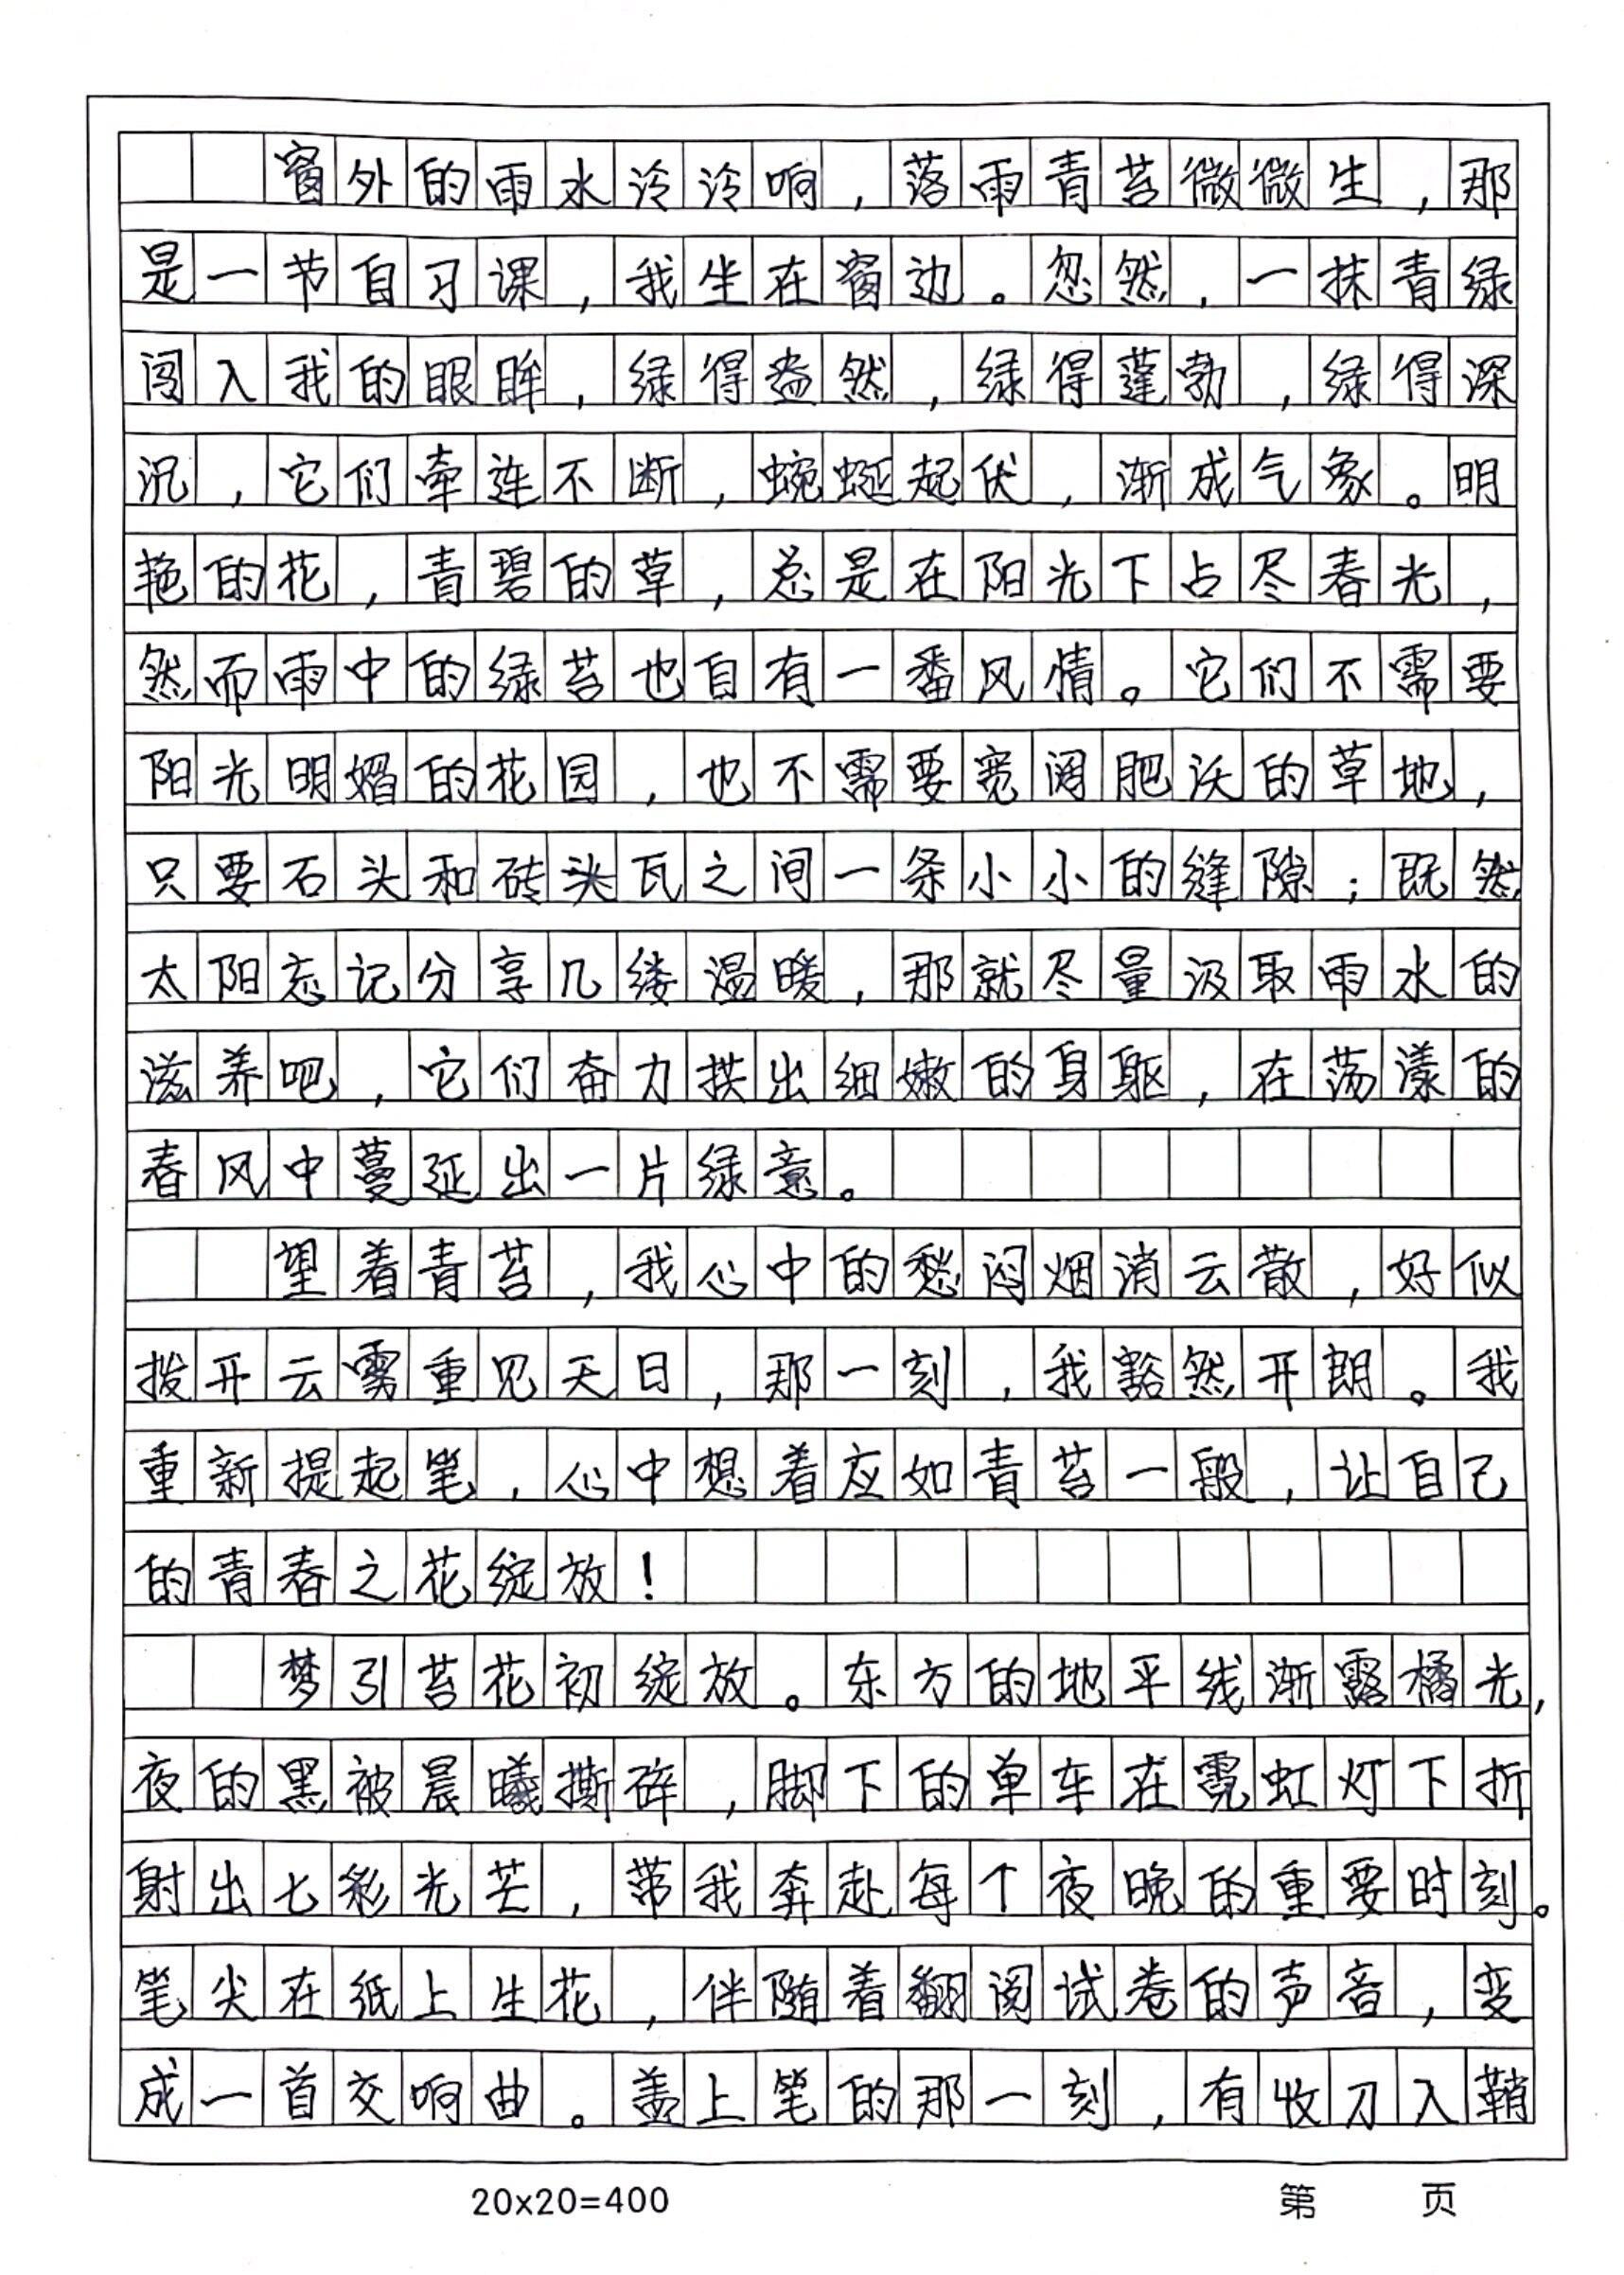 窗外的雨水泠泠响，落雨青苔微微生，那
是一节自习课，我坐在窗边。忽然，一抹青绿
闯入我的眼眸，绿得盎然，绿得蓬勃，绿得深
沉，它们牵连不断，蜿蜒起伏，渐成气象。明
艳的花，青碧的草，总是在阳光下占尽春光，
然而雨中的绿苔也自有一番风情。它们不需要
阳光明媚的花园，也不需要宽阔肥沃的草地，
只要石头和砖头瓦之间一条小小的缝隙；既然
太阳忘记分享几缕温暖，那就尽量汲取雨水的
滋养吧，它们奋力拱出细嫩的身躯，在荡漾的
春风中蔓延出一片绿意。
望着青苔，我心中的愁闷烟消云散，好似
拨开云雾重见天日，那一刻，我豁然开朗。我
重新提起笔，心中想着应如青苔一般，让自己
的青春之花绽放！
梦引苔花初绽放。东方的地平线渐露橘光，
夜的黑被晨曦撕碎，脚下的单车在霓虹灯下折
射出七彩光芒，带我奔赴每个夜晚的重要时刻。
笔尖在纸上生花，伴随着翻阅试卷的声音，变
成一首交响曲。盖上笔的那一刻，有收刀入鞘
20×20=400
第 页